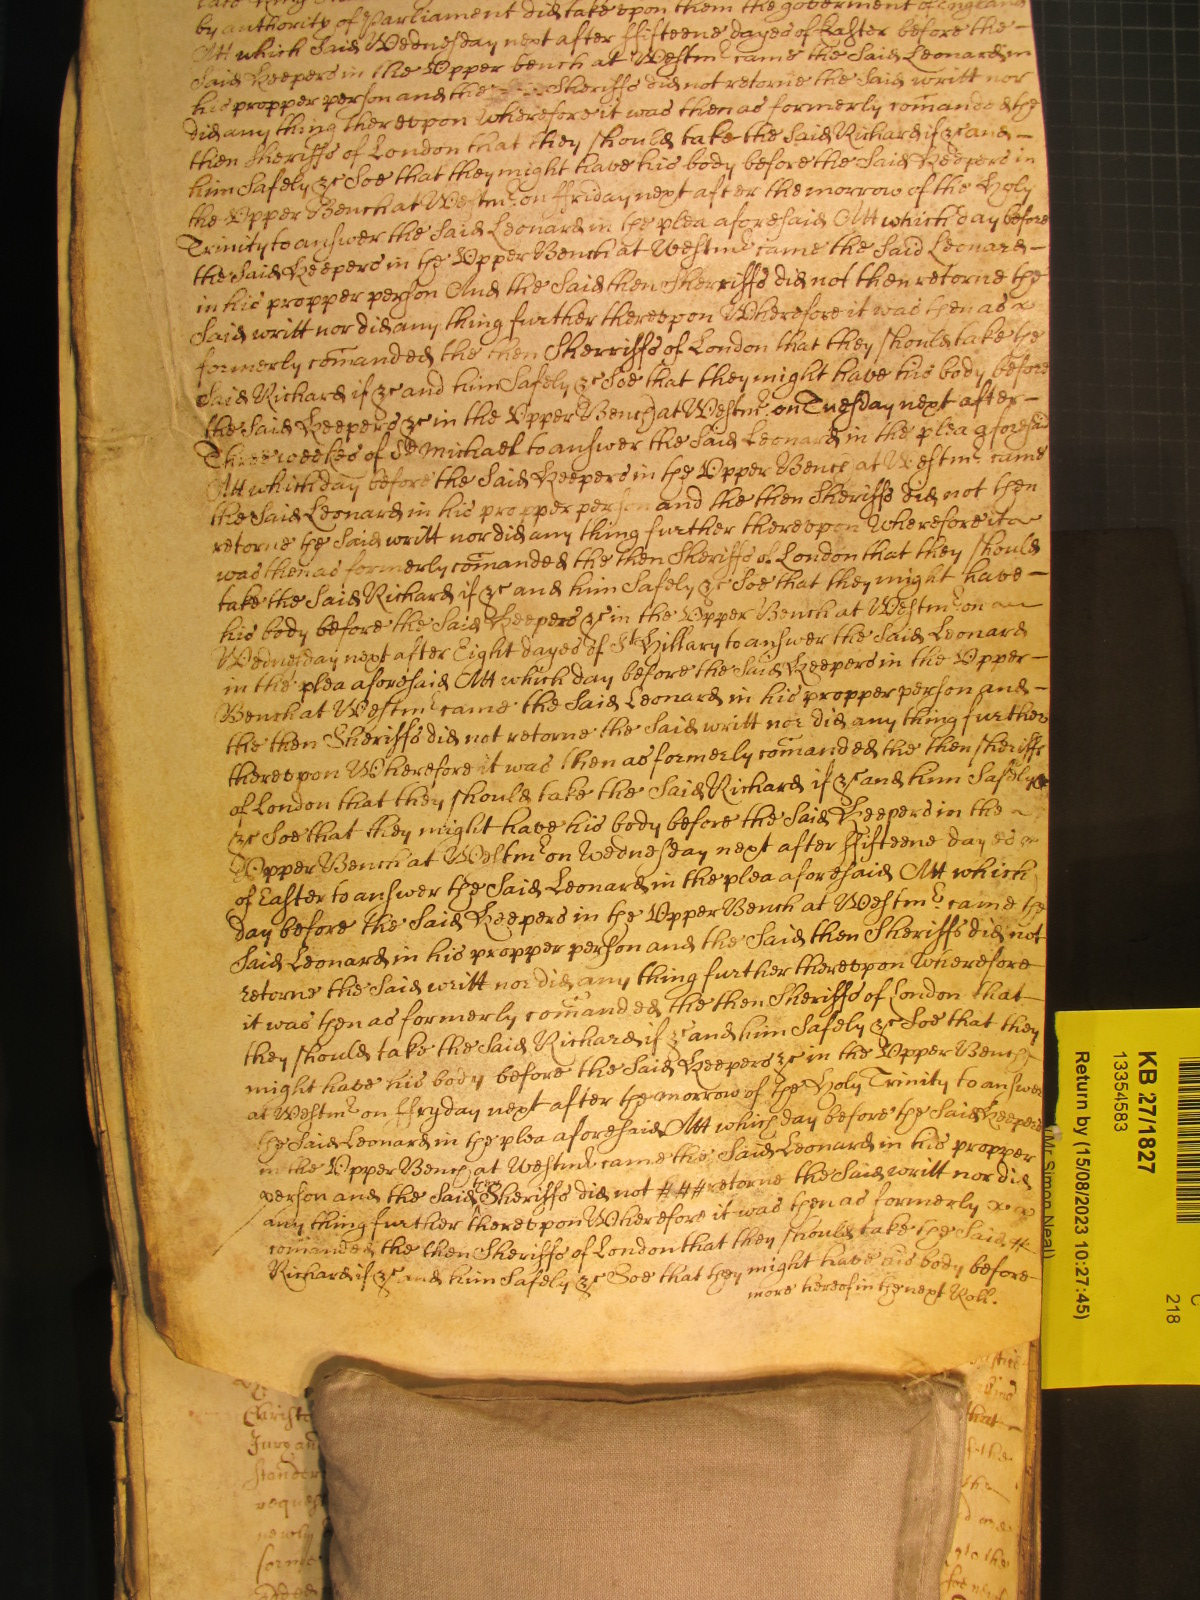 by authority of Parliament did take vpon them the goverment of England
Att which said Wednesday next after ffifteene dayes of Easter before the
said Keepers in the Vpper bench at Westmr came the said Leonard in
his propper person and the Sheriffs did not retorne the said writt nor
did any thing therevpon Wherefore it was then as formerly comanded the
then Sheriffs of London that they should take the said Richard if &c and
him safely &c Soe that they might have his body before the said Keepers in
the Vpper Bench at Westmr on ffriday next after the morrow of the Holy
Trinity to answer the said Leonard in the plea aforesaid Att which day before
the said Keepers in the Vpper Bench at Westmr came the said Leonard
in his propper person And the said then Sherriffs did not then retorne the
said writt nor did any thing further therevpon Wherefore it was then as
formerly comanded the then Sherriffs of London that they should take the
said Richard if &c and him safely &c Soe that they might have his body before
the said Keepers &c in the Vpper Bench at Westmr on Tuesday next after
Three weekes of St Michael to answer the said Leonard in the plea aforesaid
Att which day before the said Keepers in the Vpper Bench at Westmr came
the said Leonard in his propper person and the then Sheriffs did not then
retorne the said writt nor did any thing further therevpon Wherefore it
was then as formerly comanded the then Sheriffs of London that they should
take the said Richard if &c and him safely &c Soe that they might have
his body before the said Keepers &c in the Vpper Bench at Westmr on
Wednesday next after Eight dayes of St Hillary to answer the said Leonard
in the plea aforesaid Att which day before the said Keepers in the Vpper
Bench at Westmr came the said Leonard in his propper person and
the then Sheriffs did not retorne the said writt nor did any thing further
therevpon Wherefore it was then as formerly comanded the then sheriffs
of London that they should take the said Richard if &c and him safely
&c Soe that they might have his body before the said Keepers in the
Vpper Bench at Westmr on Wednesday next after ffifteene dayes
of Easter to answer the said Leonard in the plea aforesaid Att which
day before the said Keepers in the Vpper Bench at Westmr came the
said Leonard in his propper person and the said then Sheriffs did not
retorne the said writt nor did any thing further therevpon Wherefore
it was then as formerly comanded the then Sheriffs of London that
they should take the said Richard if &c and him safely &c Soe that they
might have his body before the said Keepers &c in the Vpper Bench
at Westmr on ffryday next after the morrow of the Holy Trinity to answer
the said Leonard in the plea aforesaid Att which day before the said Keepers
in the Vpper Bench at Westmr came the said Leonard in his propper
person and the said then Sheriffs did not retorne the said writt nor did
any thing further therevpon Wherefore it was then as formerly
comanded the then Sheriffs of London that they should take the said
Richard if &c and him safely &c Soe that they might have his body before
more hereof in the next Roll.
KB 27/1827
13354583
Return by (15/08/2023 10:27:45)
(Mr Simon Neal)
218